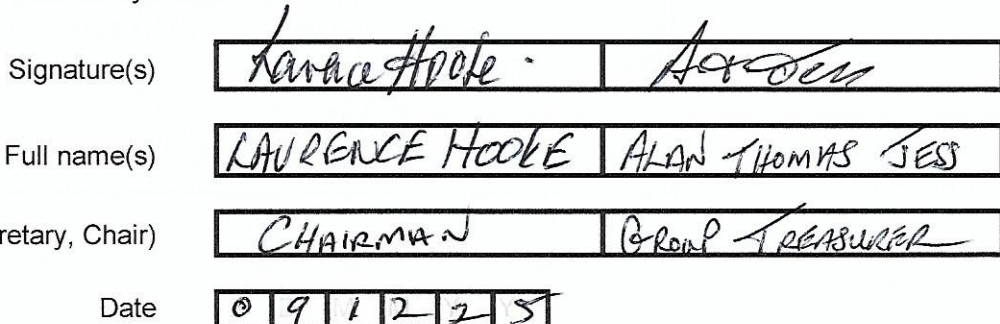 Signature(s) Laurence Hooke
Full name(s) LAURENCE HOOKE ALAN THOMAS JESS
retary, Chair) CHAIRMAN GROUP TREASURER
Date 0 9 1 2 2 5